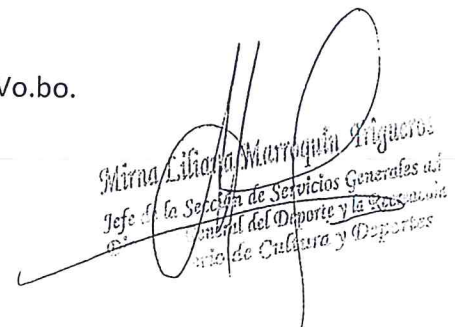 Vo.bo.
Mirna Liliana Marroquín Trigueros
Jefe de la Sección de Servicios Generales
General del Deporte y la
de Cultura y Deportes